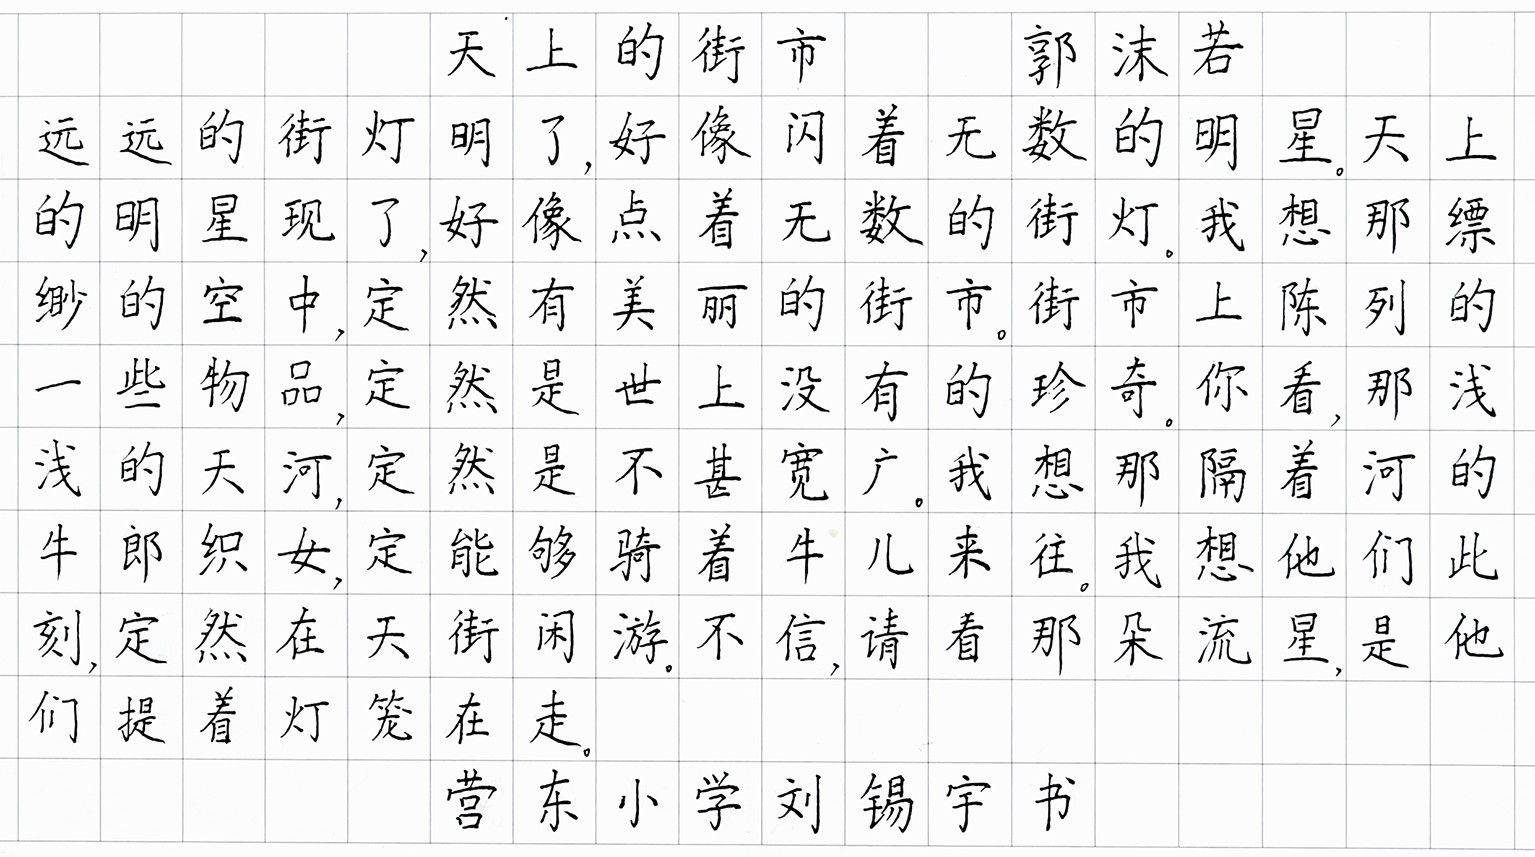 天上的街市 郭沫若
远远的街灯明了,好像闪着无数的明星。天上
的明星现了,好像点着无数的街灯。我想那缥
缈的空中,定然有美丽的街市。街市上陈列的
一些物品,定然是世上没有的珍奇。你看,那浅
浅的天河,定然是不甚宽广。我想那隔着河的
牛郎织女,定能够骑着牛儿来往。我想他们此
刻,定然在天街闲游。不信,请看那朵流星,是他
们提着灯笼在走。
营东小学刘锡宇书